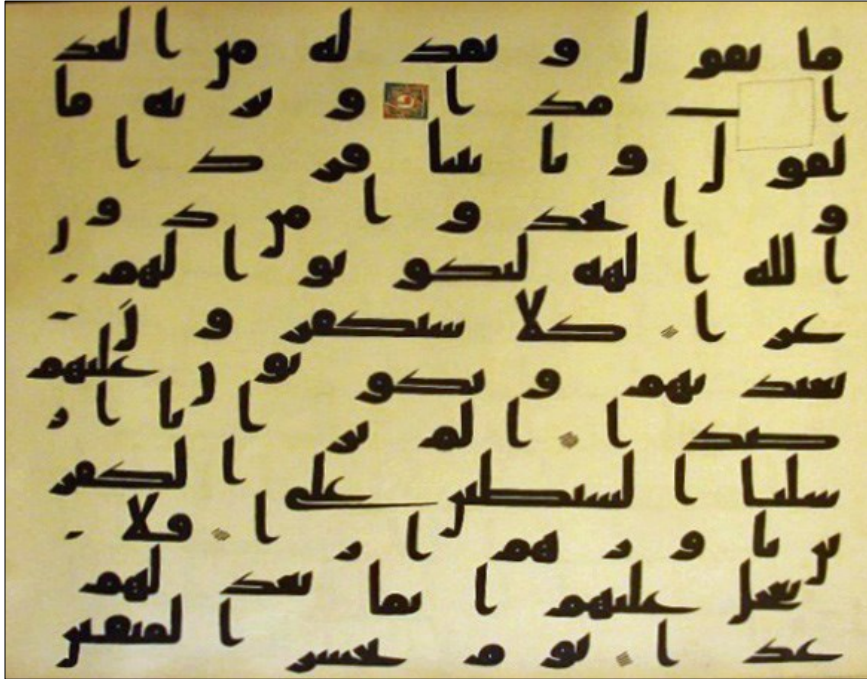 ما يقول و نمد له من العذ
ا ب مد ا و نر ثه ما
يقول و يا تينا فر د ا
و ا تخذ و ا من د و ن
ا لله ا لهه ليكو نو ا لهم
عز ا كلا سيكفر و ن
بعبد تهم و يكو نو ن عليهم
ضد ا ا لم تر ا نا ا ر
سلنا ا لشيطين على ا لكفر
ين تا و ز هم ا ز ا فلا
تعجل عليهم ا نما نعد لهم
عد ا يو م نحشر ا لمتقين